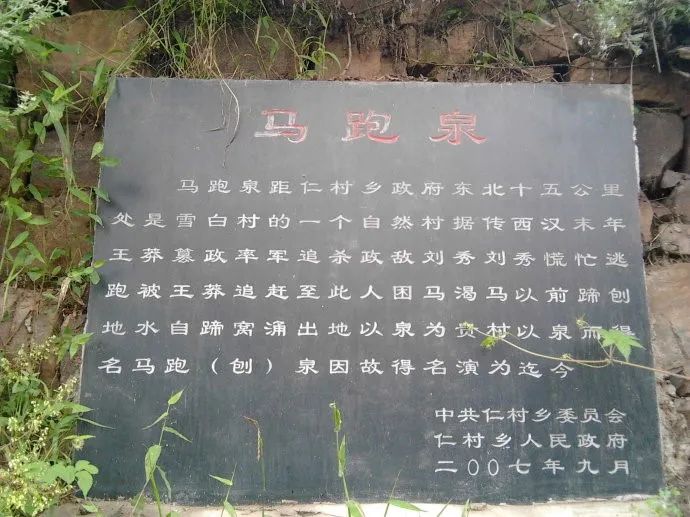 马跑泉
马跑泉距仁村乡政府东北十五公里
处是雪白村的一个自然村据传西汉末年
王莽篡政率军追杀政敌刘秀刘秀慌忙逃
跑被王莽追赶至此人困马渴马以前蹄刨
地水自蹄窝涌出地以泉为贵村以泉而得
名马跑（刨）泉因故得名演为迄今
中共仁村乡委员会
仁村乡人民政府
二〇〇七年九月